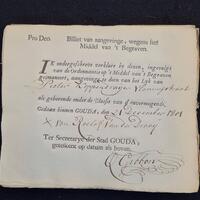 Pro Deo.
Billet van aangevinge, wegens het
Middel van 't Begraven.
IK ondergeschreve verklare by dezen, ingevolge
van de Ordonnantie op 't Middel van 't Begraven
geëmaneert, aangevinge te doen van het Lyk van
Pieter
als gehoorende onder de Classis van f onvermogende.
Gedaan binnen GOUDA, den 21 December 1801
X van Roelof van der
Ter Secretarye der Stad GOUDA,
getekent op datum als boven.